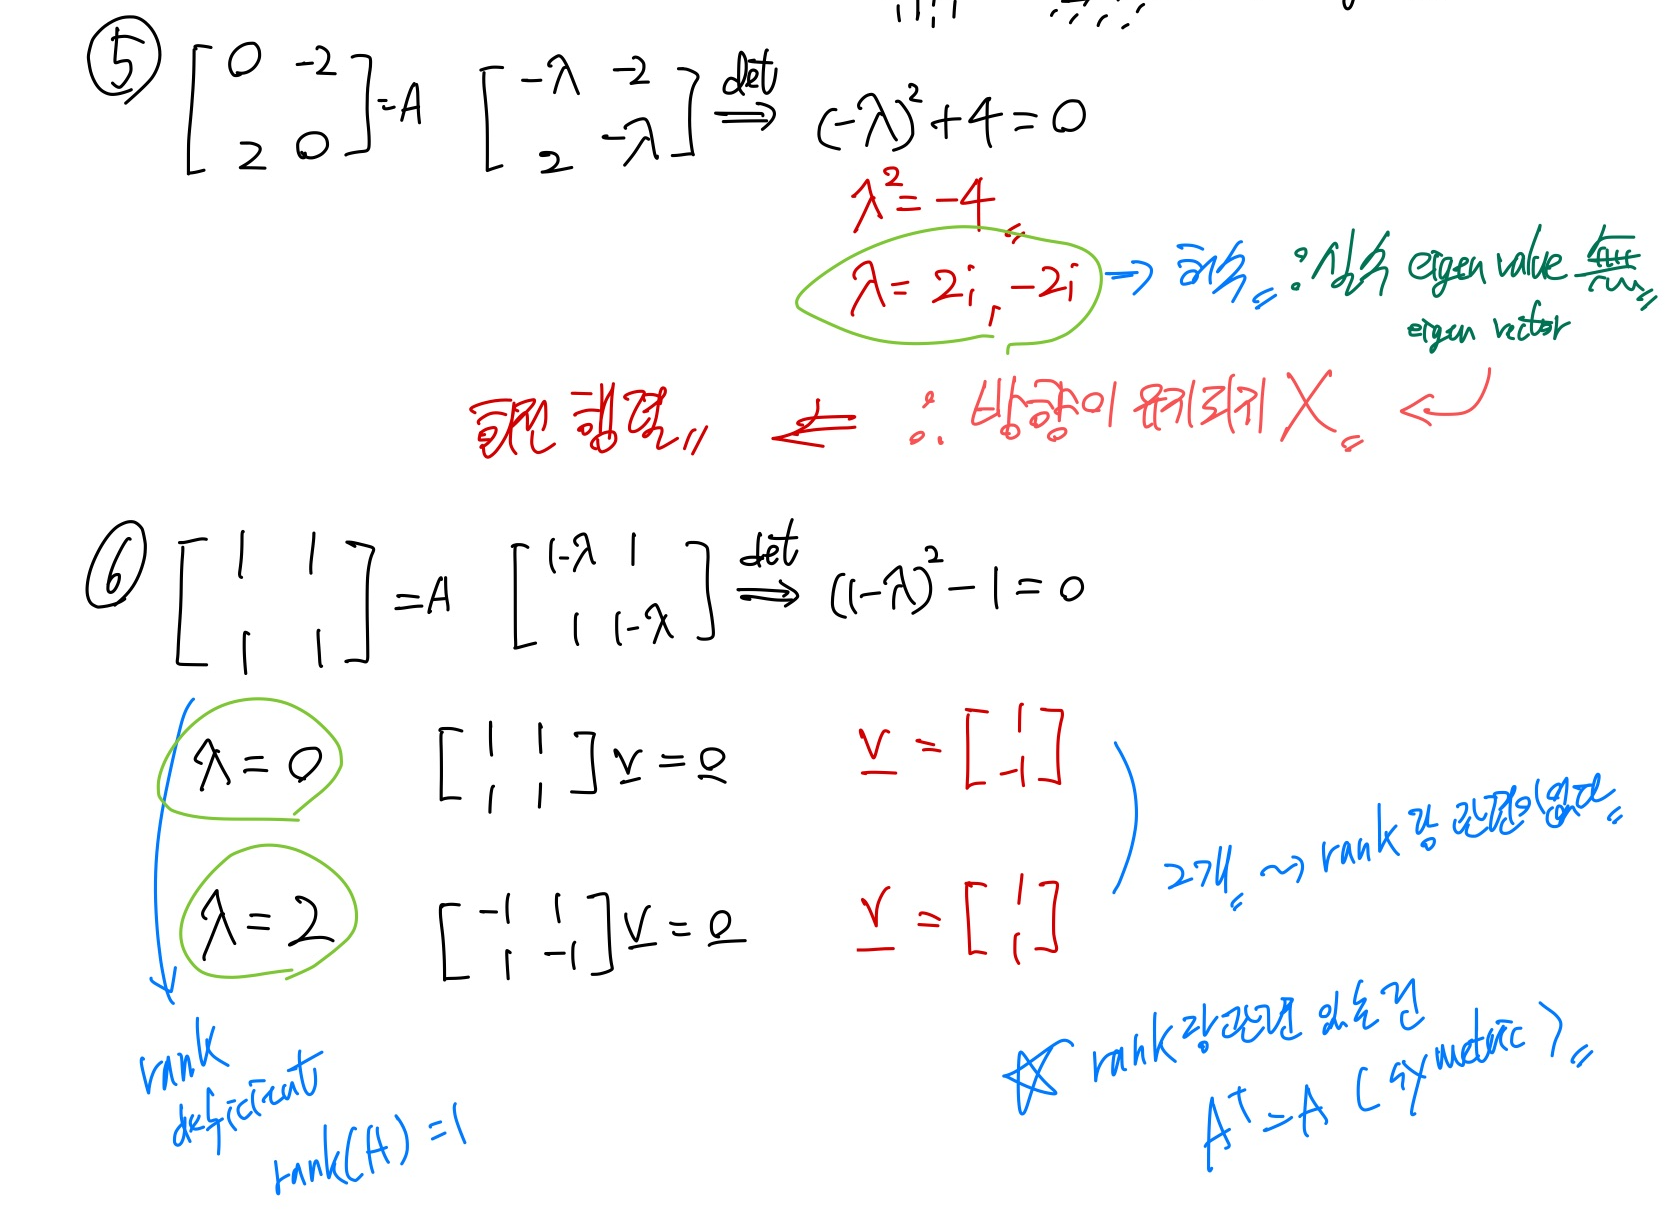 ⑤ [0 -2; 2 0] = A [-λ -2; 2 -λ] det ⇒ (-λ)² + 4 = 0
λ² = -4
λ = 2i, -2i → 허수 ∴ 실수 eigen value 無
eigen vector
∴ 방향이 유지되지 X
⇐ 회전 행렬
⑥ [1 1; 1 1] = A [1-λ 1; 1 1-λ] det ⇒ (1-λ)² - 1 = 0
λ = 0 [1 1; 1 1] v = 0 v = [1; -1]
λ = 2 [-1 1; 1 -1] v = 0 v = [1; 1]
2개 ⇝ rank랑 관련이 없다
rank
deficient
rank(A) = 1
☆ rank랑 관련 있는 건
Aᵀ = A (symetric)